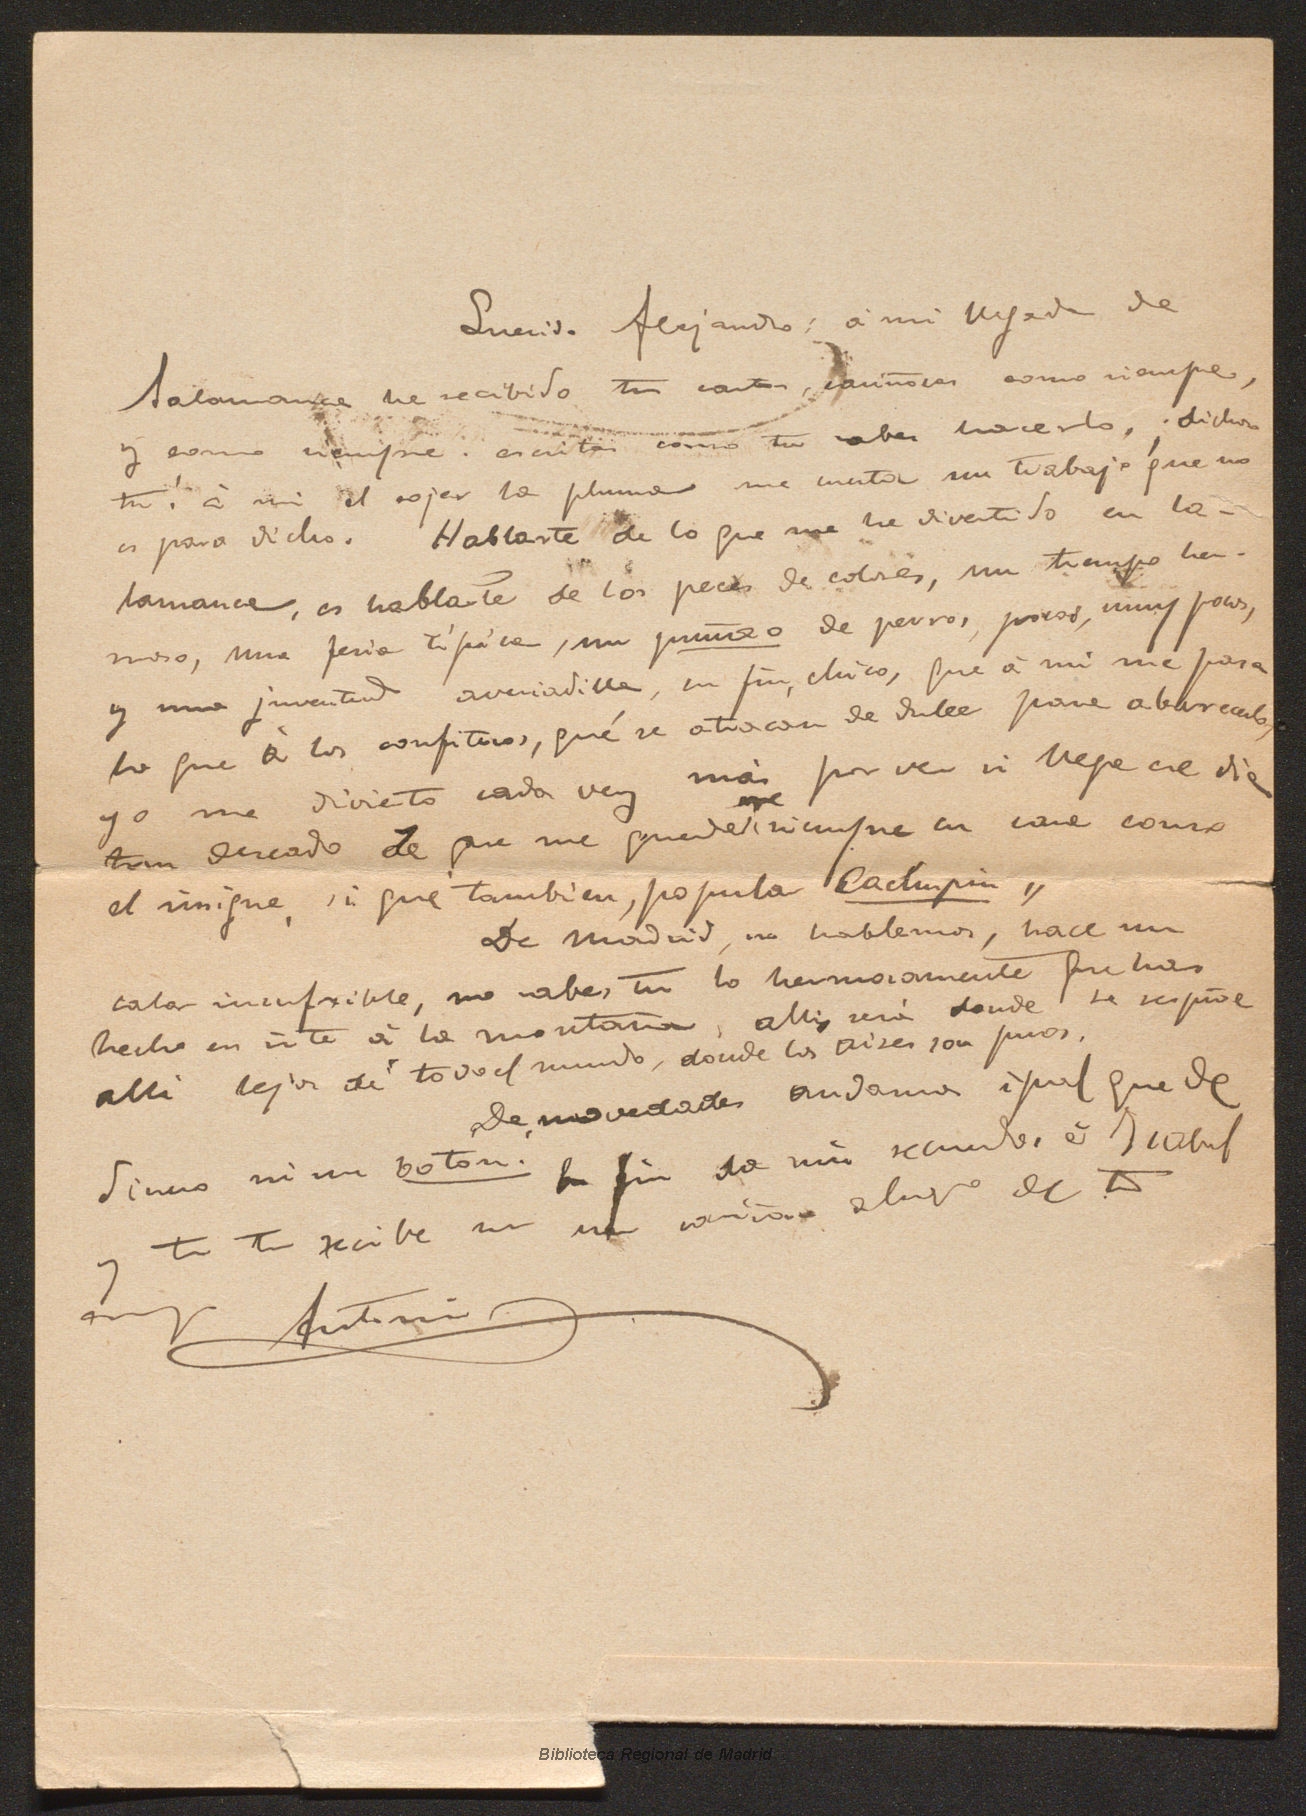 Querido Alejandro: á mi llegada de
Salamanca he recibido tu carta, cariñosa como siempre,
y como siempre escrita como tu sabes hacerlo, ¡dichoso
tu! á mi el cojer la pluma me cuesta un trabajo que no
es para dicho. Hablarte de lo que me he divertido en Sa-
lamanca, es hablarte de los peces de colores, un tiempo her-
moso, una feria típica, un de perros, pocas, muy pocas,
y una juventud averiadilla, en fin, chico, que á mi me pasa
lo que á los confiteros, qué se atracan de dulce para aburrecerlo,
yo me divierto cada vez más por ver si llega ese dia
tan deseado de que me quede siempre en casa como
el insigne, si que también, popular Cachupin"
De Madrid, no hablemos, hace un
calor insufrible, no sabes tu lo hermosamente que has
hecho en irte á la montaña, allí, será donde se respire
allí lejos de todo el mundo, donde los aires son puros.
De novedades andamos igual que de
dinero ni un botón. En fin da mis recuerdos á Isabel
y tu recibe un cariñoso abrazo de tu
Antonio
Biblioteca Regional de Madrid